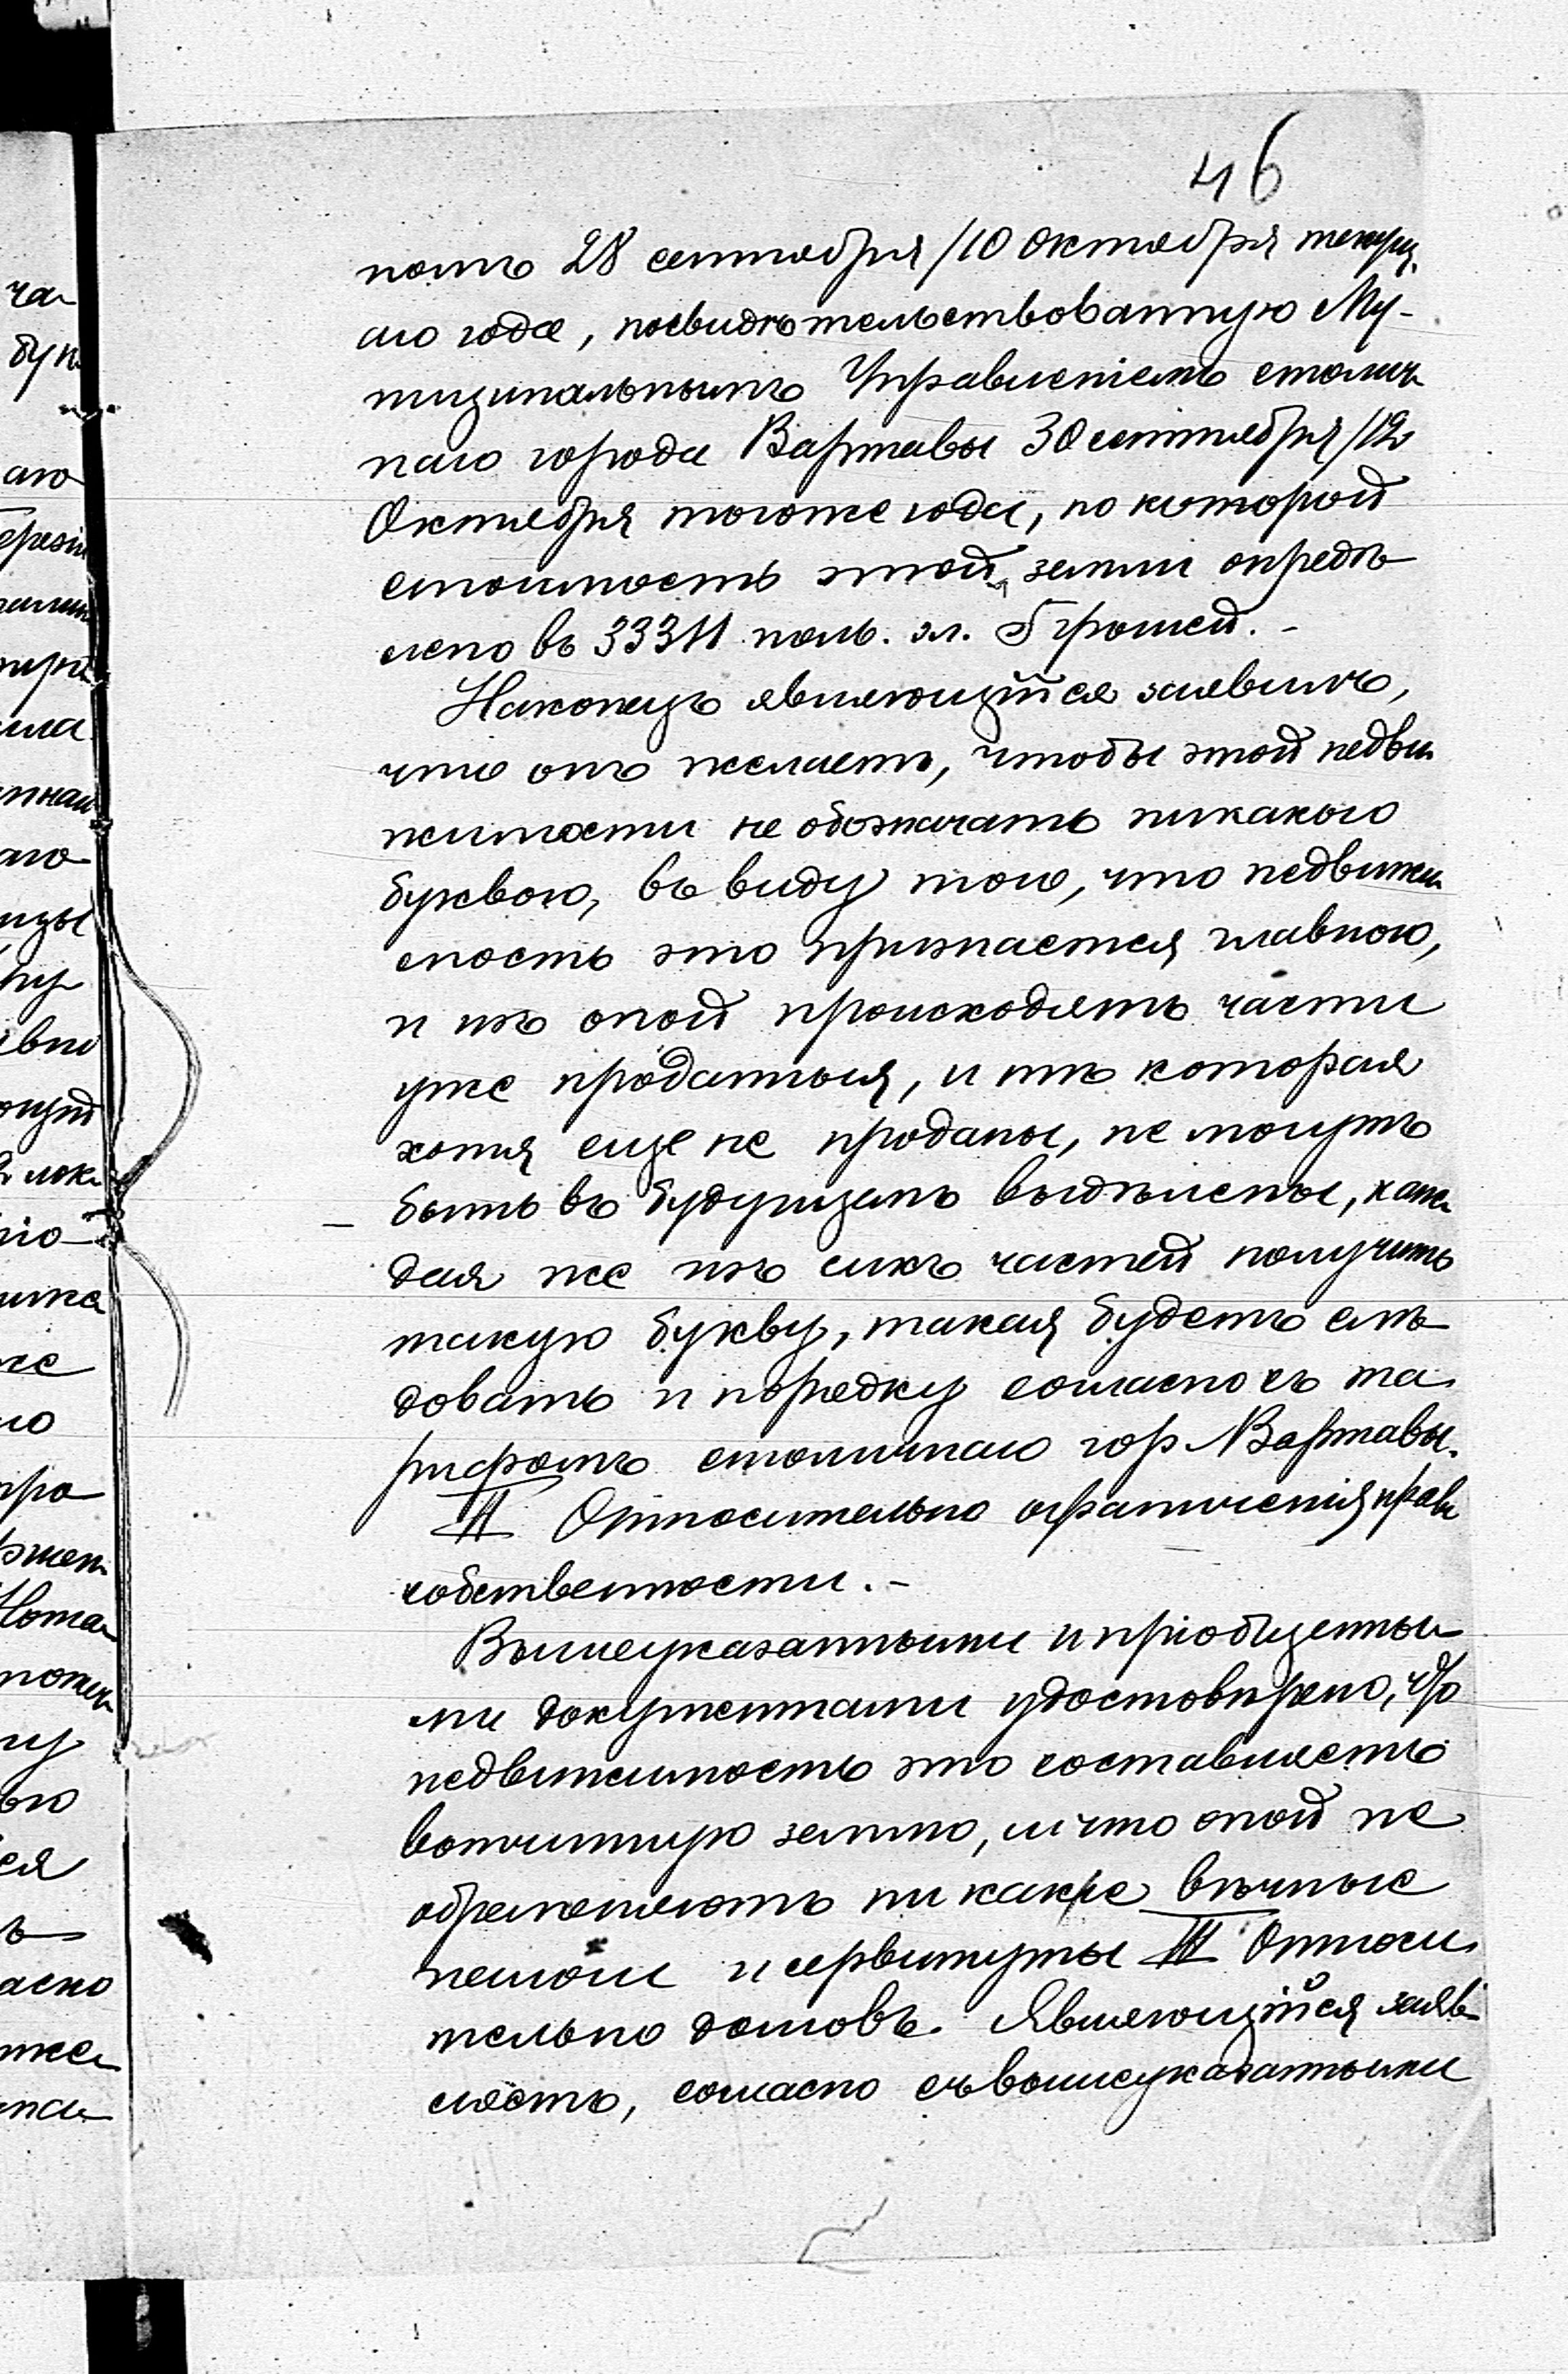 46
номъ 28 сентября/10 Октября текущ
аго года, посвидѣтельствованную Му-
ниципальнымъ Управленіемъ столич
наго города Варшавы 30 сентября/12
Октября тогоже года, по которой
стоимость этой земли опредѣ
лено въ 33311 поль. зл. 5 грошей. -
Наконецъ являющійся заявилъ,
что онъ желаетъ, чтобы этой недви
жимости не обозначать никакою
буквою, въ виду того, что недвижи
мость это признается главною,
и изъ оной происходятъ части
уже проданныя, и тѣ которая
хотя еще не проданы, не могутъ
быть въ будущемъ выдѣлены, каж
дая же изъ сихъ частей получитъ
такую букву, такая будетъ слѣ
довать и порядку согласно съ та
рифомъ столичнаго гор. Варшавы.
II Относительно ограниченія права
собственности. -
Вышеуказанными и пріобщенны
ми документами удостовѣрено, что
недвижимость это составляетъ
вотчинную землю, и что оной не
обременяютъ ни какіе вѣчные
и сервитуты III Относи
тельно долговъ. Являющійся заяв
ляетъ, согласно съ вышеуказанными
ча
бук
аго
мпнаи
аго
ну
же
Нота
ся
асно